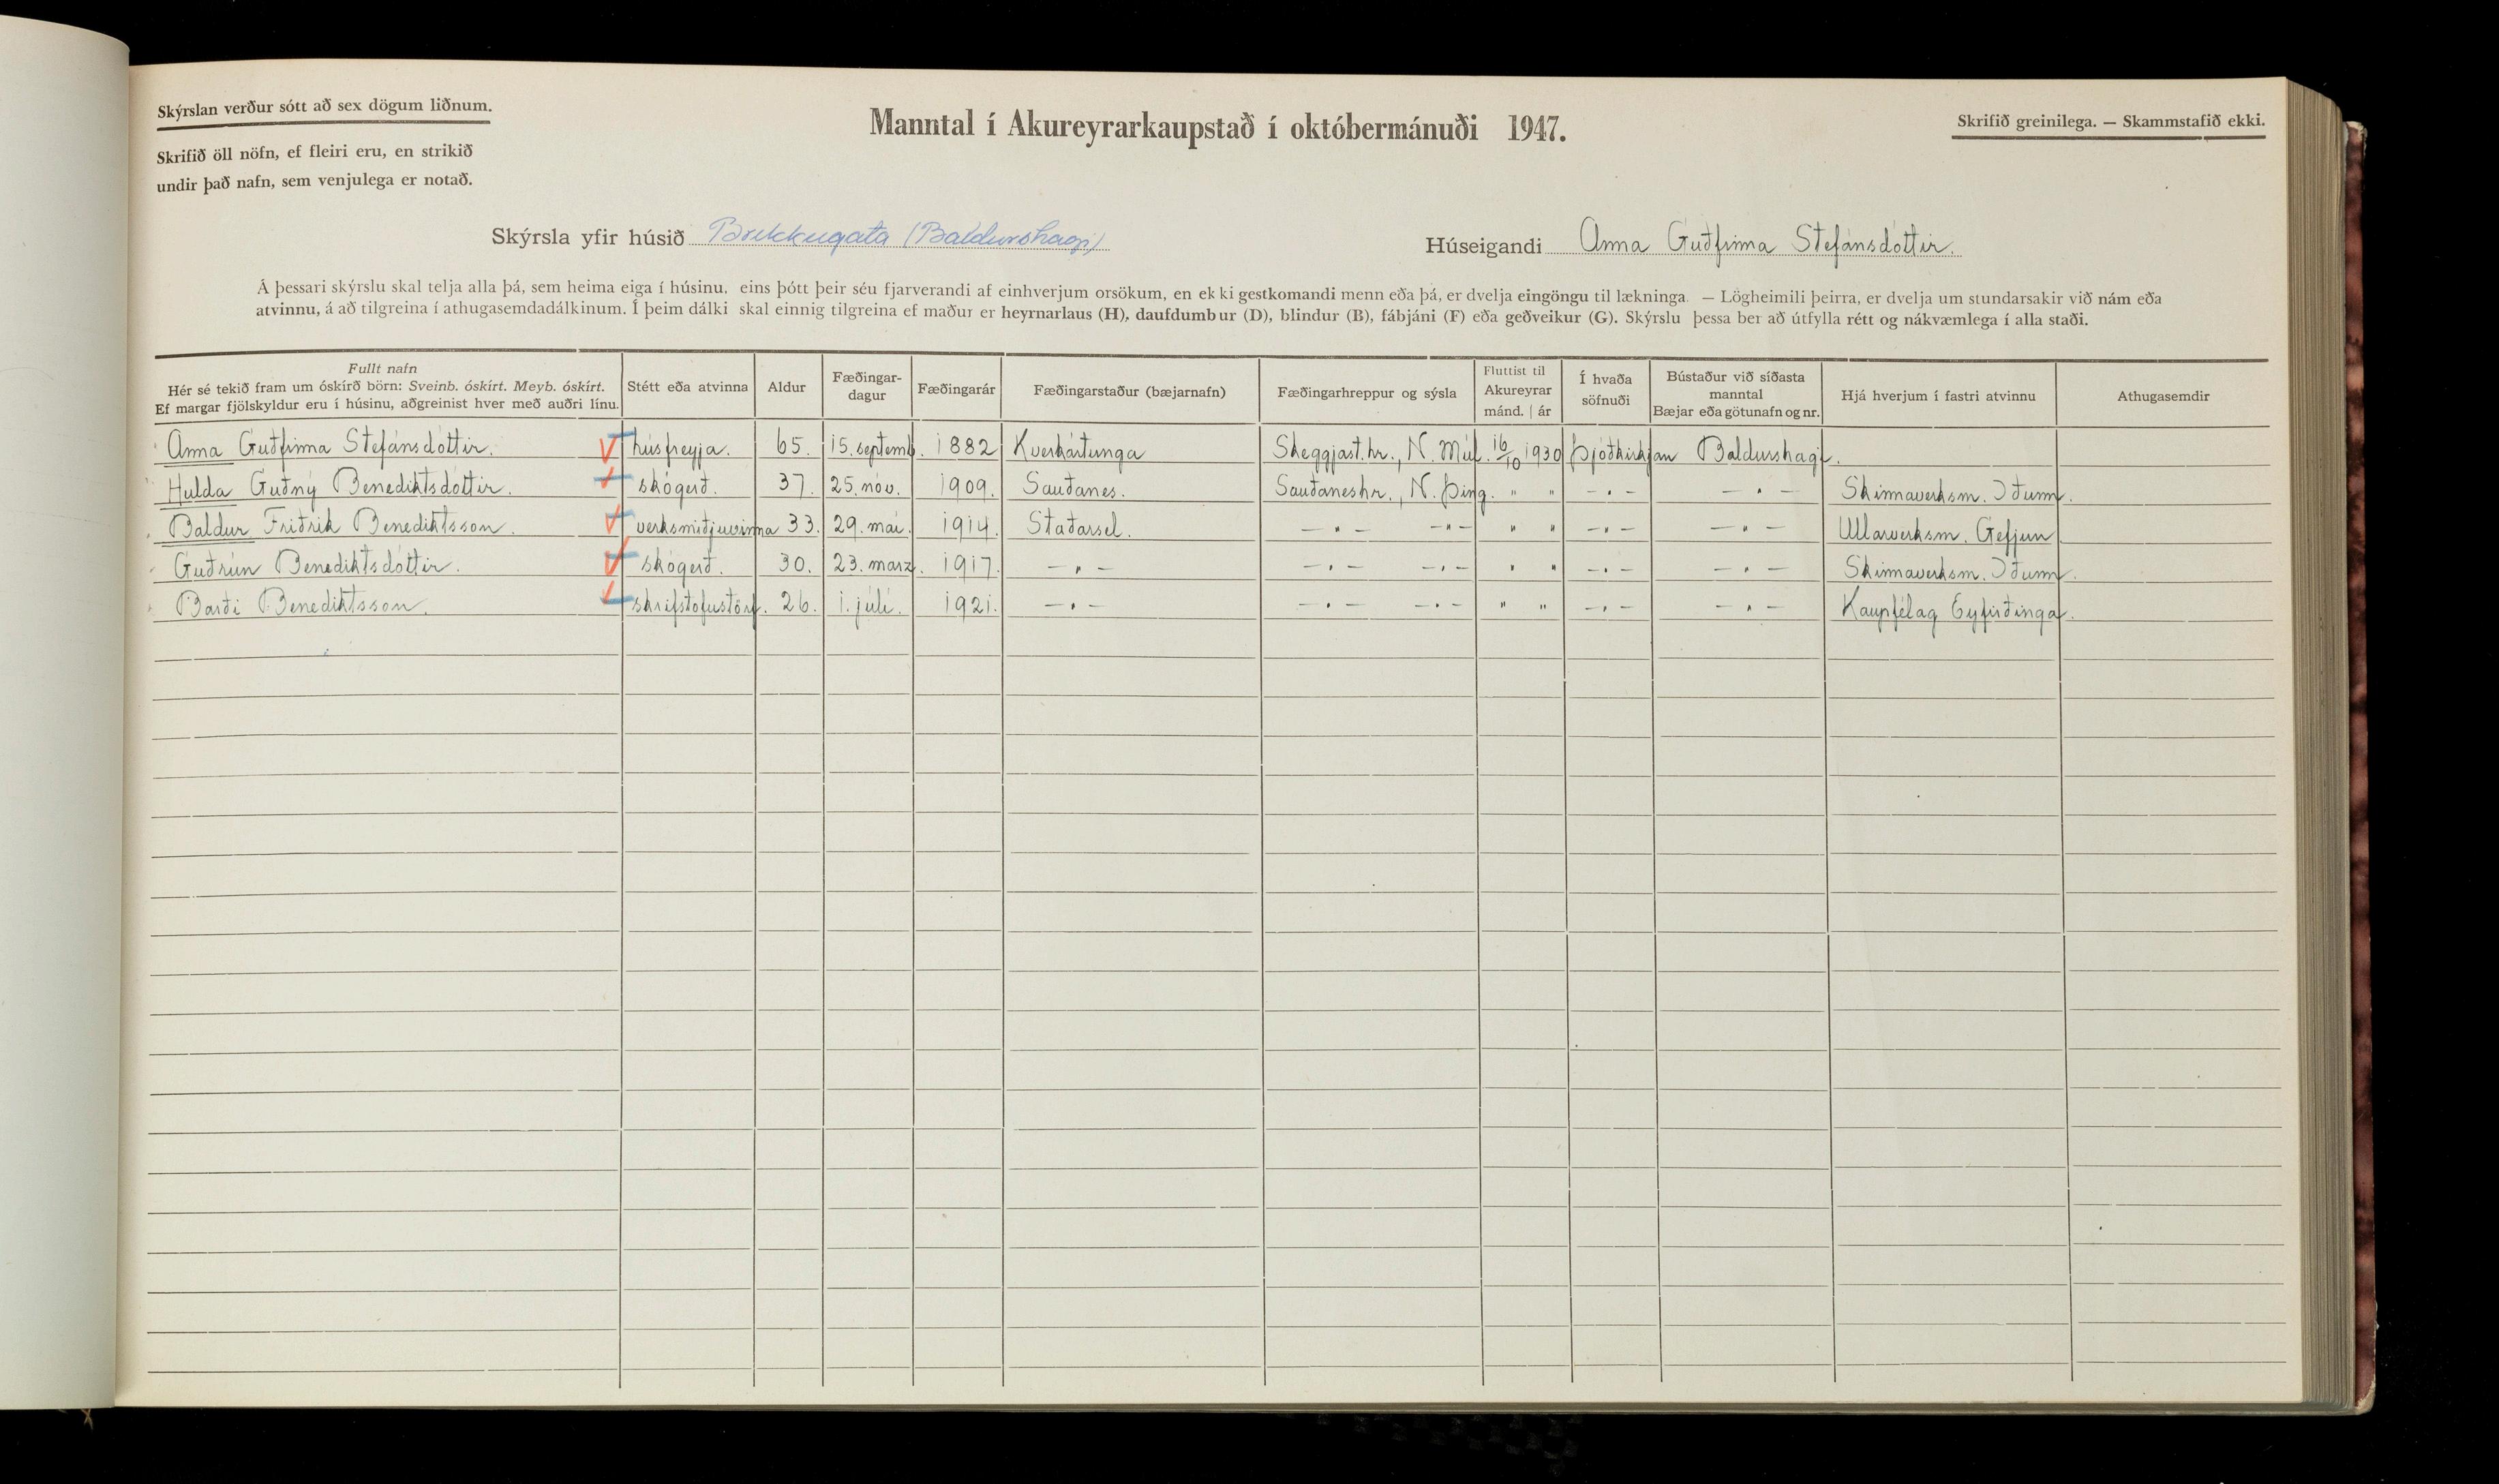 Skýrslan verður sótt að sex dögum liðnum.
Manntal í Akureyrarkaupstað í októbermánuði 1947.
Skrifið greinilega. — Skammstafið ekki.
Skrifið öll nöfn, ef fleiri eru, en strikið
undir það nafn, sem venjulega er notað.
Skýrsla yfir húsið Brekkugata (Baldurshagi)
Húseigandi Anna Guðfinna Stefánsdóttir.
Á þessari skýrslu skal telja alla þá, sem heima eiga í húsinu, eins þótt þeir séu fjarverandi af einhverjum orsökum, en ekki gestkomandi menn eða þá, er dvelja eingöngu til lækninga. — Lögheimili þeirra, er dvelja um stundarsakir við nám eða
atvinnu, á að tilgreina í athugasemdadálkinum. Í þeim dálki skal einnig tilgreina ef maður er heyrnarlaus (H), daufdumbur (D), blindur (B), fábjáni (F) eða geðveikur (G). Skýrslu þessa ber að útfylla rétt og nákvæmlega í alla staði.
Fullt nafn
Hér sé tekið fram um óskírð börn: Sveinb. óskírt. Meyb. óskírt.
Ef margar fjölskyldur eru í húsinu, aðgreinist hver með auðri línu.
Stétt eða atvinna
Aldur
Fæðingar-
dagur
Fæðingarár
Fæðingarstaður (bæjarnafn)
Fæðingarhreppur og sýsla
Fluttist til
Akureyrar
mánd. | ár
Í hvaða
söfnuði
Bústaður við síðasta
manntal
Bæjar eða götunafn og nr.
Hjá hverjum í fastri atvinnu
Athugasemdir
Anna Guðfinna Stefánsdóttir. húsfreyja. 65. 15. septemb. 1882 Kverkártunga Skeggjast.hr., N. Múl. 16/10 1930 Þjóðkirkjan Baldurshagi.
Hulda Guðný Benediktsdóttir. skógerð. 37. 25. nóv. 1909. Sauðanes. Sauðaneshr., N. Þing. " " — " — — " — Skinnaverksm. Iðunn.
Baldur Friðrik Benediktsson. verksmiðjuvinna 33. 29. maí. 1914. Staðarsel. — " — — " — " " — " — — " — Ullarverksm. Gefjun
Guðrún Benediktsdóttir. skógerð. 30. 23. marz. 1917. — " — — " — — " — " " — " — — " — Skinnaverksm. Iðunn.
Barði Benediktsson. skrifstofustörf. 26. 1. júlí. 1921. — " — — " — — " — " " — " — — " — Kaupfélag Eyfirðinga.